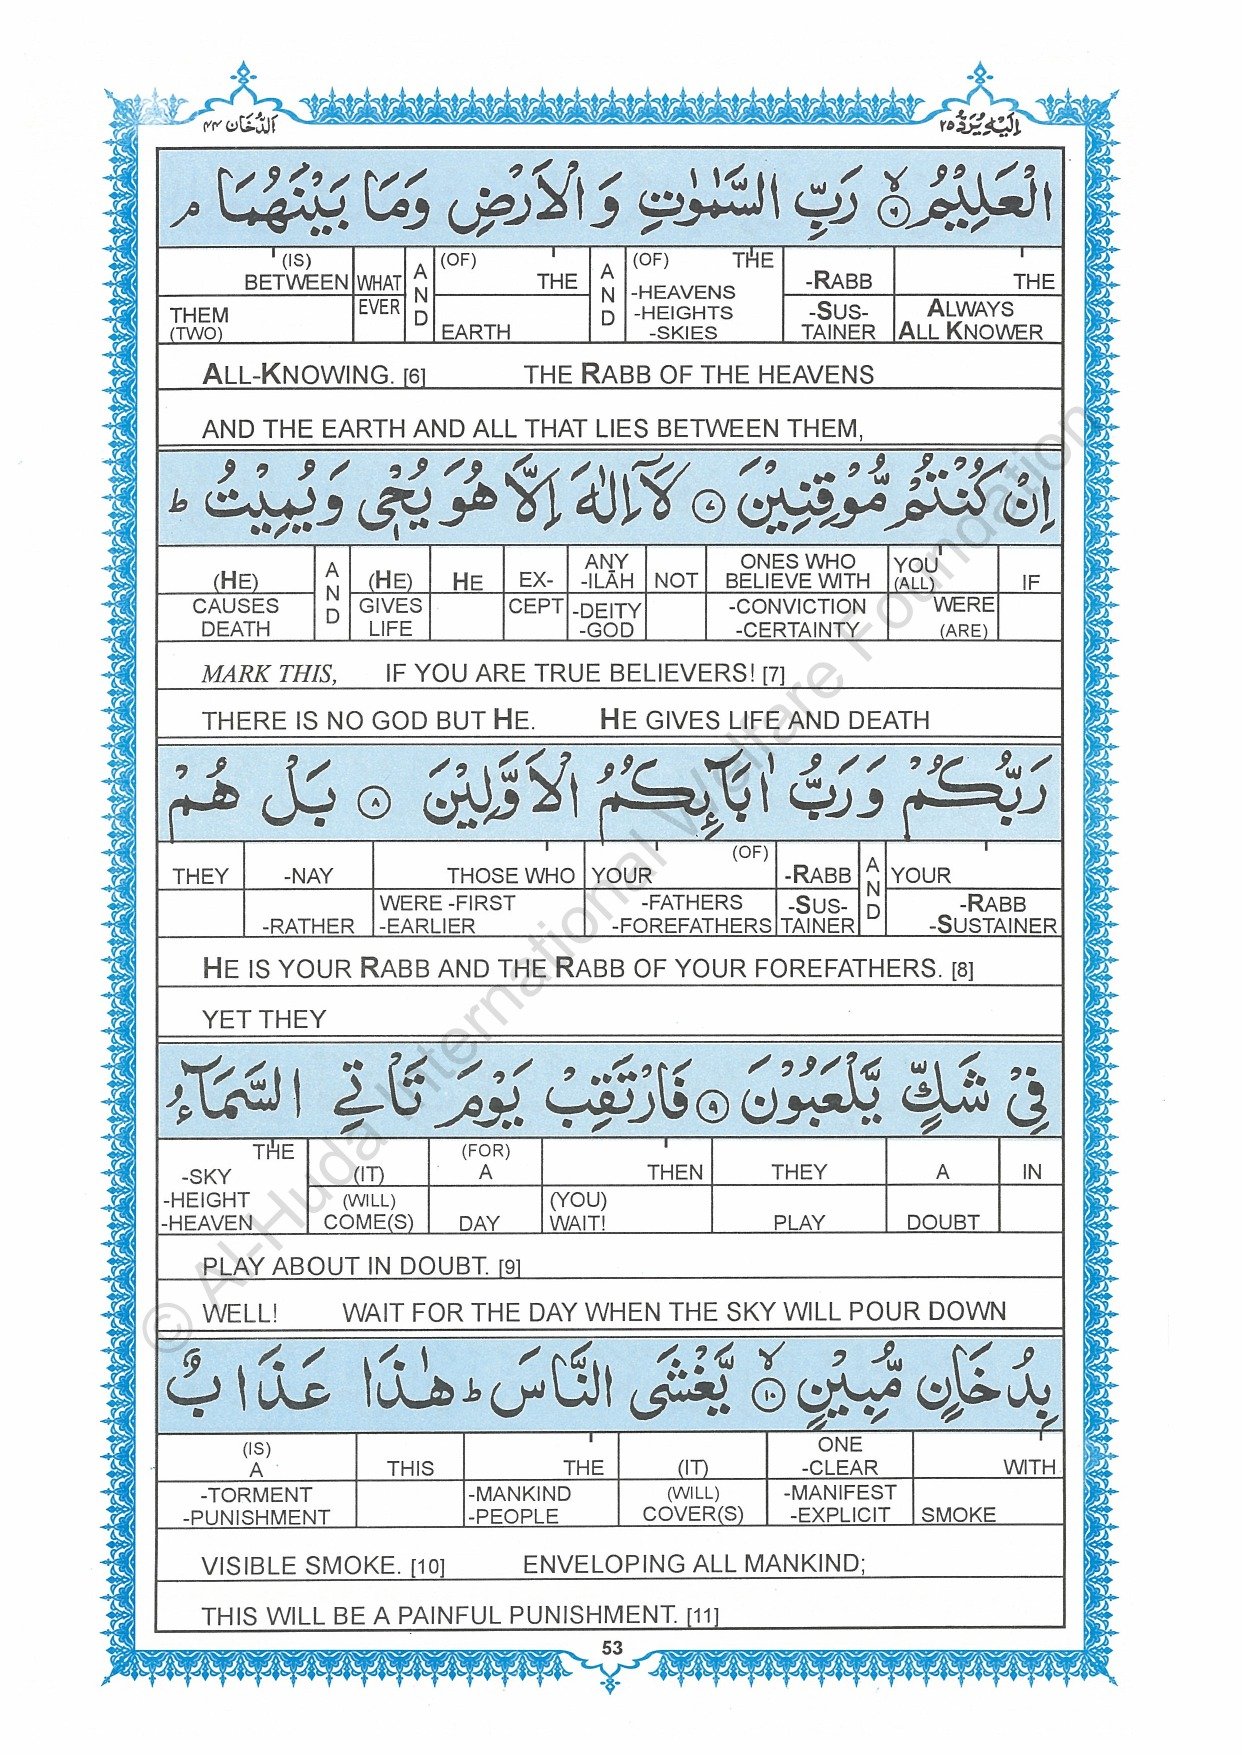 اَلدُّخَان ٤٤
اِلَيْهِ يُرَدُّ ٢٥
الْعَلِيْمُ ۙ٦ رَبِّ السَّمٰوٰتِ وَ الْاَرْضِ وَمَا بَيْنَهُمَا ۘ
(IS) BETWEEN WHAT AND (OF) THE AND (OF) THE -RABB THE
THEM (TWO) EVER EARTH -HEAVENS -HEIGHTS -SKIES -SUS-TAINER ALWAYS ALL KNOWER
ALL-KNOWING. [6] THE RABB OF THE HEAVENS
AND THE EARTH AND ALL THAT LIES BETWEEN THEM,
اِنْ كُنْتُمْ مُّوْقِنِيْنَ ٧ لَآ اِلٰهَ اِلَّا هُوَ يُحْيٖ وَيُمِيْتُ ؕ
(HE) AND (HE) HE EX- ANY -ILĀH NOT ONES WHO BELIEVE WITH YOU (ALL) IF
CAUSES DEATH GIVES LIFE CEPT -DEITY -GOD -CONVICTION -CERTAINTY WERE (ARE)
MARK THIS, IF YOU ARE TRUE BELIEVERS! [7]
THERE IS NO GOD BUT HE. HE GIVES LIFE AND DEATH
رَبُّكُمْ وَرَبُّ اٰبَآئِكُمُ الْاَوَّلِيْنَ ٨ بَلْ هُمْ
THEY -NAY THOSE WHO YOUR (OF) -RABB AND YOUR
-RATHER WERE -FIRST -EARLIER -FATHERS -FOREFATHERS -SUS-TAINER -RABB -SUSTAINER
HE IS YOUR RABB AND THE RABB OF YOUR FOREFATHERS. [8]
YET THEY
فِيْ شَكٍّ يَّلْعَبُوْنَ ٩ فَارْتَقِبْ يَوْمَ تَاْتِي السَّمَآءُ
THE -SKY (IT) (FOR) A THEN THEY A IN
-HEIGHT -HEAVEN (WILL) COME(S) DAY (YOU) WAIT! PLAY DOUBT
PLAY ABOUT IN DOUBT. [9]
WELL! WAIT FOR THE DAY WHEN THE SKY WILL POUR DOWN
بِدُخَانٍ مُّبِيْنٍ ۙ١٠ يَّغْشَى النَّاسَ ؕ هٰذَا عَذَابٌ
(IS) A THIS THE (IT) ONE -CLEAR WITH
-TORMENT -PUNISHMENT -MANKIND -PEOPLE (WILL) COVER(S) -MANIFEST -EXPLICIT SMOKE
VISIBLE SMOKE. [10] ENVELOPING ALL MANKIND;
THIS WILL BE A PAINFUL PUNISHMENT. [11]
53
© Al-Huda International Welfare Foundation